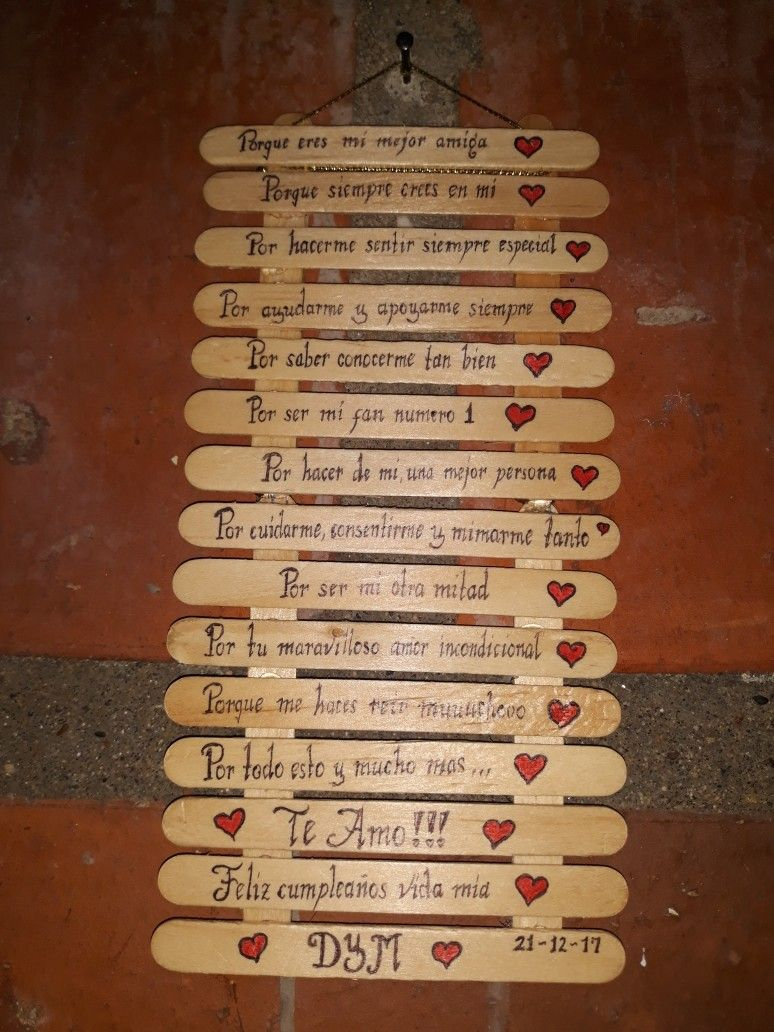 Porque eres mi mejor amiga
Porque siempre crees en mi
Por hacerme sentir siempre especial
Por ayudarme y apoyarme siempre
Por saber conocerme tan bien
Por ser mi fan numero 1
Por hacer de mi, una mejor persona
Por cuidarme, consentirme y mimarme tanto
Por ser mi otra mitad
Por tu maravilloso amor incondicional
Porque me haces reir muuuchooo
Por todo esto y mucho mas...
Te Amo!!!
Feliz cumpleaños vida mia
DYM 21-12-17